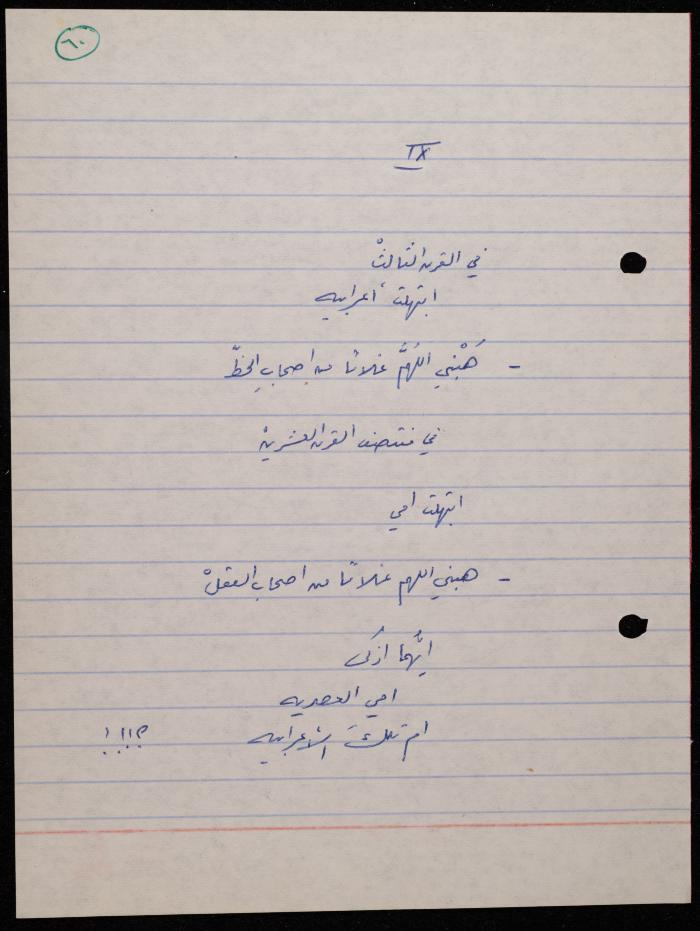 ٦٠
IX
في القرن الثالثْ
ابتهلت أعرابيه
- هَبْني اللهُمَّ غلامًا من اصحابِ الحظّ
في منتصف القرن العشرينْ
ابتهلت امي
- هبني اللهم غلامًا من اصحاب العقلْ
ايُّهما اذكى
امي العصريه
ام تلكَ الأعرابيه ؟!!!